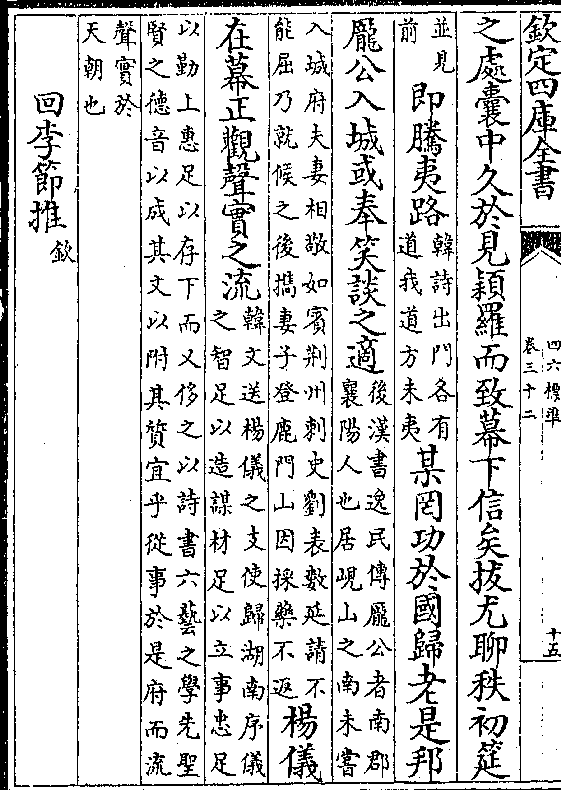 欽定四庫全書
四六標準
卷三十二
十五
之處囊中久於見穎羅而致幕下信矣拔尤聊秩初筵
並見
前
即騰夷路
韓詩出門各有
道我道方未夷
某罔功於國歸老是邦
龎公入城或奉笑談之適
後漢書逸民傳龎公者南郡
襄陽人也居峴山之南未嘗
入城府夫妻相敬如賓荆州刺史劉表數延請不
能屈乃就候之後攜妻子登鹿門山因採藥不返
楊儀
在幕正觀聲實之流
韓文送楊儀之支使歸湖南序儀
之智足以造謀材足以立事忠足
以勤上惠足以存下而又侈之以詩書六藝之學先聖
賢之德音以成其文以附其質宜乎從事於是府而流
聲實於
天朝也
回李節推
欽